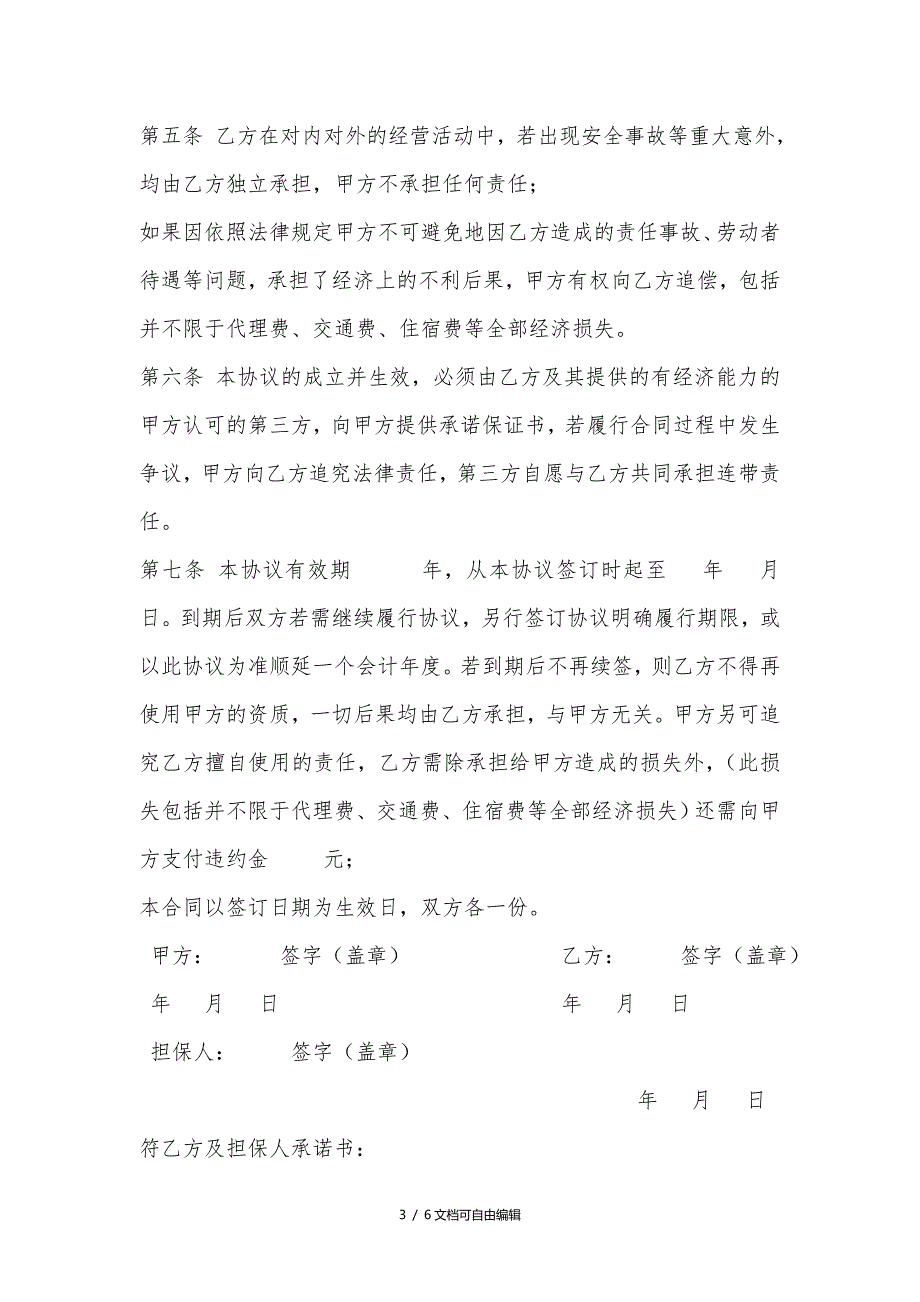 第五条 乙方在对内对外的经营活动中，若出现安全事故等重大意外，
均由乙方独立承担，甲方不承担任何责任；
如果因依照法律规定甲方不可避免地因乙方造成的责任事故、劳动者
待遇等问题，承担了经济上的不利后果，甲方有权向乙方追偿，包括
并不限于代理费、交通费、住宿费等全部经济损失。
第六条 本协议的成立并生效，必须由乙方及其提供的有经济能力的
甲方认可的第三方，向甲方提供承诺保证书，若履行合同过程中发生
争议，甲方向乙方追究法律责任，第三方自愿与乙方共同承担连带责
任。
第七条 本协议有效期 年，从本协议签订时起至 年 月
日。到期后双方若需继续履行协议，另行签订协议明确履行期限，或
以此协议为准顺延一个会计年度。若到期后不再续签，则乙方不得再
使用甲方的资质，一切后果均由乙方承担，与甲方无关。甲方另可追
究乙方擅自使用的责任，乙方需除承担给甲方造成的损失外，（此损
失包括并不限于代理费、交通费、住宿费等全部经济损失）还需向甲
方支付违约金 元；
本合同以签订日期为生效日，双方各一份。
甲方： 签字（盖章） 乙方： 签字（盖章）
年 月 日 年 月 日
担保人： 签字（盖章）
年 月 日
符乙方及担保人承诺书：
3 / 6文档可自由编辑